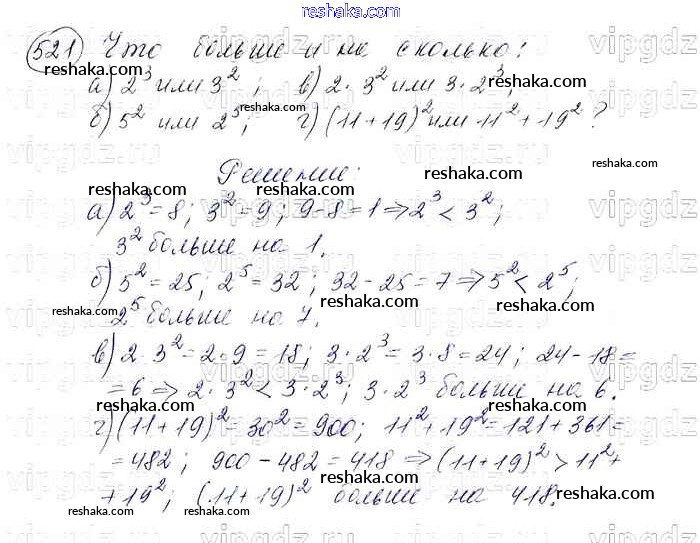 reshaka.ru
521 Что больше и на сколько:
а) 2³ или 3²; в) 2·3² или 3·2³;
б) 5² или 2⁵; г) (11+19)² или 11²+19²?
Решение:
а) 2³=8; 3²=9; 9-8=1 ⇒ 2³ < 3²;
3² больше на 1.
б) 5²=25; 2⁵=32; 32-25=7 ⇒ 5² < 2⁵;
2⁵ больше на 7.
в) 2·3²=2·9=18; 3·2³=3·8=24; 24-18=
=6 ⇒ 2·3² < 3·2³; 3·2³ больше на 6.
г) (11+19)²=30²=900; 11²+19²=121+361=
=482; 900-482=418 ⇒ (11+19)² > 11²+
+19²; (11+19)² больше на 418.